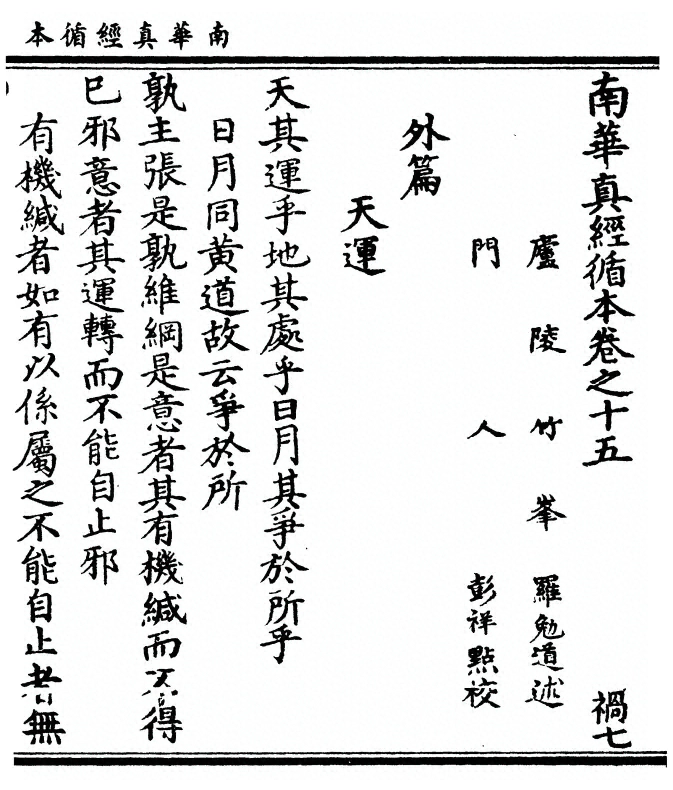 南華真經循本
南華真經循本卷之十五
禍七
廬陵竹峯羅勉道述
門人彭祥點校
外篇
天運
天其運乎地其處乎日月其爭於所乎
日月同黃道故云爭於所
孰主張是孰維綱是意者其有機緘而不得
巳邪意者其運轉而不能自止邪
有機緘者如有以係屬之不能自止者無